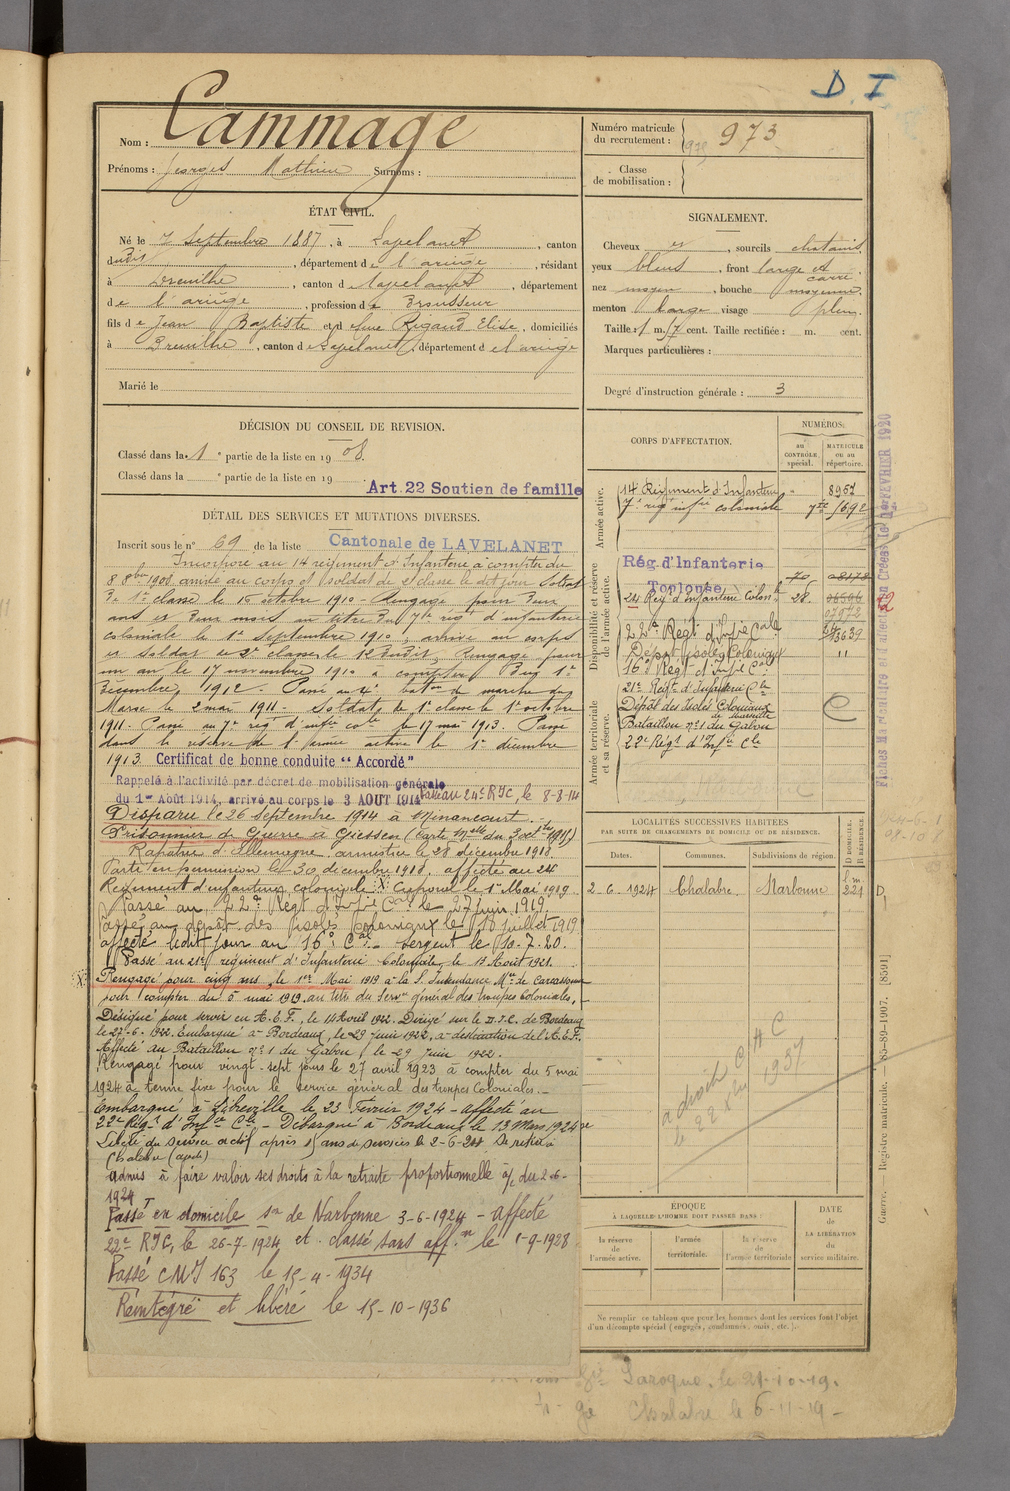 D. I
Nom : Cammage
Prénoms : Georges Mathieu Surnoms :
Numéro matricule
du recrutement : 973
Classe
de mobilisation :
ÉTAT CIVIL.
Né le 7 Septembre 1887, à Lavelanet, canton
dudit, département de l'ariège, résidant
à Dreuilhe, canton de Lavelanet, département
de l'ariège, profession de Brousseur
fils de Jean Baptiste et de Rigaud Elise, domiciliés
à Dreuilhe, canton de Lavelanet, département de l'ariège
Marié le
SIGNALEMENT.
Cheveux et, sourcils chatains
yeux bleus, front large et carré
nez moyen, bouche moyenne
menton large visage plein
Taille : 1 m. 7 cent. Taille rectifiée : m. cent.
Marques particulières :
Degré d'instruction générale : 3
DÉCISION DU CONSEIL DE REVISION.
Classé dans la 1e partie de la liste en 1908.
Classé dans la e partie de la liste en 19
Art. 22 Soutien de famille
DÉTAIL DES SERVICES ET MUTATIONS DIVERSES.
Inscrit sous le n° 69 de la liste Cantonale de LAVELANET
Incorporé au 14 régiment d'Infanterie à compter du
8 8bre 1908, arrivé au corps et soldat de 2e classe le dit jour. Soldat
de 1re classe le 10 octobre 1910 - Rengagé pour deux
ans et deux mois au titre du 7me rég d'infanterie
coloniale le 1er septembre 1910, arrivé au corps
et soldat de 2e classe le 12 dudit, Rengagé pour
un an le 17 novembre 1910 à compter du 1er
Décembre 1912. Passé au 4e baton de marche du
Maroc le 2 mai 1911 - Soldat de 1e classe le 1er octobre
1911 - Passé au 7e rég d'infie cole le 17 mai 1913. Passé
dans la réserve de l'armée active le 1er décembre
1913. Certificat de bonne conduite "Accordé"
Rappelé à l'activité par décret de mobilisation générale
du 1er Août 1914, arrivé au corps le 3 AOUT 1914 Passé au 24e RIC, le 8-8-14
Disparu le 26 septembre 1914 à Minaucourt.
Prisonnier de Guerre à Giessen
Rapatrié d'Allemagne armistice le 28 décembre 1918
Parti en permission le 30 décembre 1918. affecté au 24
Régiment d'infanterie coloniale (X) Caporal le 1er Mai 1919
Passé au 22e Régt d'Infie Cale le 27 juin 1919.
Passé au dépôt des isolés coloniaux le 10 juillet 1919
affecté ledit jour au 16e Cal - Sergent le 10-7-20.
Passé au 21e régiment d'Infanterie Coloniale, le 13 Août 1921.
(X) Rengagé pour cinq ans, le 1er Mai 1919 à la S. Intendance Mre de Carcassonne
pour compter du 5 mai 1919, au titre du Servce général des troupes Coloniales,
Désigné pour servir en A.E.F., le 14 Avril 1922. Dirigé sur le D.I.C. de Bordeaux
le 27-6-1922. Embarqué à Bordeaux, le 29 Juin 1922, à destination de l'A.E.F.
Affecté au Bataillon n°1 du Gabon, le 29 Juin 1922.
Rengagé pour vingt-sept jours le 27 avril 1923 à compter du 5 mai
1924 à terme fixe pour le service général des troupes Coloniales.
Embarqué à Libreville le 23 Février 1924 - affecté au
22e Régt d'Infie Cle - Débarqué à Bordeaux le 13 Mars 1924
Libéré du service actif après 15 ans de services le 2-6-24 Se retire à
Chalabre (Aude)
admis à faire valoir ses droits à la retraite proportionnelle a/c du 2-6-
1924
Passé en domicile son de Narbonne 3-6-1924 - affecté
22e RIC, le 26-7-1924 et classé sans affon le 1-9-1928
Passé CMI 163 le 15-4-1934
Réintégré et libéré le 15-10-1936
CORPS D'AFFECTATION.
NUMÉROS:
au
CONTRÔLE
spécial.
MATRICULE
ou au
répertoire.
Armée active.
14e Régiment d'Infanterie " 8967
7e rég infie coloniale 1692
Disponibilité et réserve
de l'armée active.
Rég. d'Infanterie
Toulouse
24e Rég d'Infanterie Colonle 28.
22e Régt d'Infie Cale 3639
Dépôt isolés Coloniaux "
16e Régt d'Infie Cle
21e Régt d'Infanterie Cle
Dépôt des Isolés Coloniaux
de Marseille
Bataillon n°1 du Gabon
22e Régt d'Infie Cle
C
Armée territoriale
et sa réserve.
LOCALITÉS SUCCESSIVES HABITÉES
PAR SUITE DE CHANGEMENTS DE DOMICILE OU DE RÉSIDENCE.
Dates. Communes. Subdivisions de région. D DOMICILE. R RÉSIDENCE.
2.6.1924 Chalabre Narbonne D
a droit C/H C
le 22 1937
ÉPOQUE
À LAQUELLE L'HOMME DOIT PASSER DANS :
la réserve
de
l'armée active.
l'armée
territoriale.
la réserve
de
l'armée territoriale
DATE
de
LA LIBÉRATION
du
service militaire.
Ne remplir ce tableau que pour les hommes dont les services font l'objet
d'un décompte spécial (engagés, condamnés, omis, etc.).
Laroque, le 21-10-19.
Chalabre le 6-11-19
Guerre. — Registre matricule. — 85-89-1907. [8591]